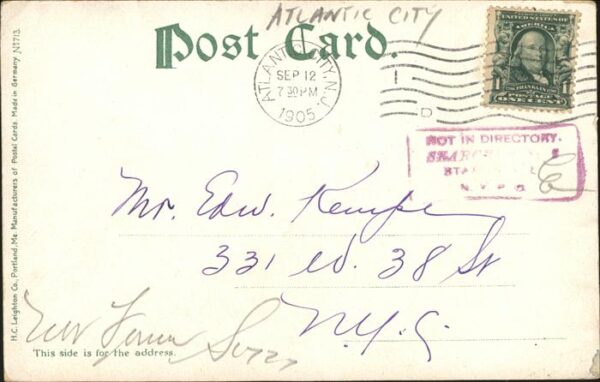 ATLANTIC CITY
Post Card.
UNITED STATES OF
AMERICA
FRANKLIN
1 1
ONE CENT
ATLANTIC CITY, N.J.
SEP 12
7 30 PM
1905
D
NOT IN DIRECTORY.
N. Y. P. O.
Mr. Edw. Kempe
331 W. 38 St
N.Y.C.
This side is for the address.
H.C. Leighton Co., Portland, Me. Manufacturers of Postal Cards. Made in Germany Nº 713.